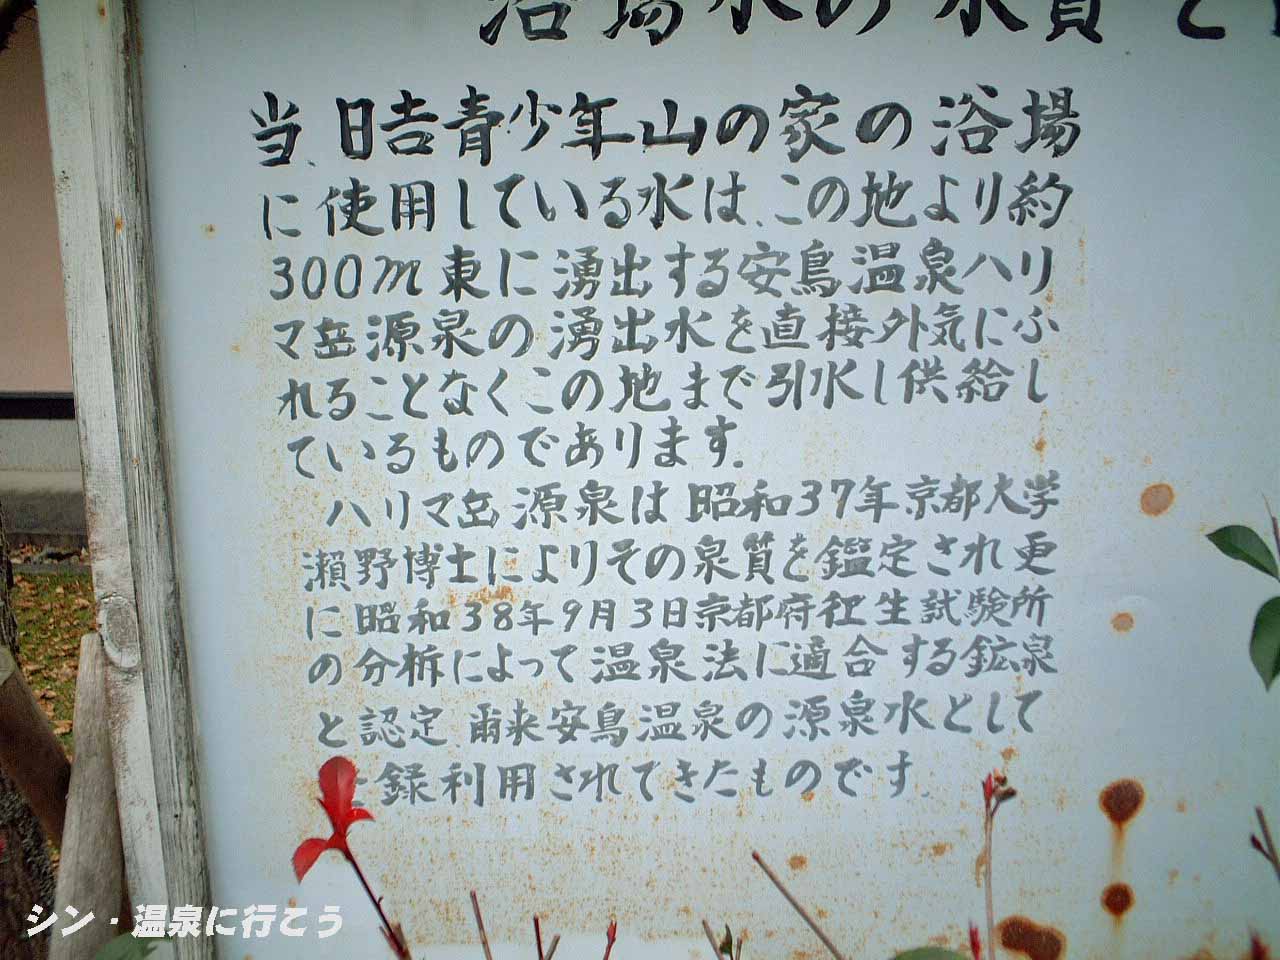 浴場水の水質と
当、日吉青少年山の家の浴場
に使用している水は、この地より約
300m東に湧出する安鳥温泉ハリ
マ岳源泉の湧出水を直接外気にふ
れることなくこの地まで引水し供給し
ているものであります。
ハリマ岳源泉は昭和37年京都大学
瀬野博士によりその泉質を鑑定され更
に昭和38年9月3日京都府衛生試験所
の分析によって温泉法に適合する鉱泉
と認定、爾来安鳥温泉の源泉水として
録利用されてきたものです。
シン・温泉に行こう